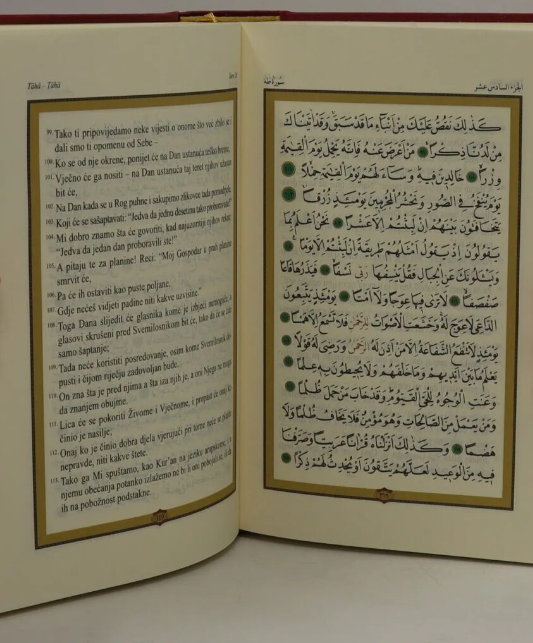 Tāhā - Tāhā
99. Tako ti pripovijedamo neke vijesti o onome što već zbilo se i
dali smo ti opomenu od Sebe –
100. Ko se od nje okrene, ponijet će na Dan ustanuća teško breme,
101. Vječno će ga nositi – na Dan ustanuća taj teret njihov užasan
bit će,
102. Na Dan kada se u Rog puhne i sakupimo zlikovce tada pomodrjele,
103. Koji će se sašaptavati: "Jedva da jednu desetinu tako proboraviste!"
104. Mi dobro znamo šta će govoriti, kad najrazumniji njihov rekne:
"Jedva da jedan dan proboravili ste!"
105. A pitaju te za planine! Reci: "Moj Gospodar u prah planine
smrvit će,
106. Pa će ih ostaviti kao puste poljane,
107. Gdje nećeš vidjeti padine niti kakve uzvisine."
108. Toga Dana slijedit će glasnika kome je izbjeći nemoguće, a
glasovi skrušeni pred Svemilosnikom bit će, tako da će se čuti
samo šaptanje;
109. Tada neće koristiti posredovanje, osim kome Svemilosnik do-
pusti i čijom riječju zadovoljan bude.
110. On zna šta je pred njima a šta iza njih je, a oni Njega ne mogu
da znanjem obujme.
111. Lica će se pokoriti Živome i Vječnome, i propast će onaj ko
činio je nasilje;
112. Onaj ko je činio dobra djela vjerujući pri tome neće se plašiti
nepravde, niti kakve štete.
113. Tako ga Mi spuštamo, kao Kur'an na jeziku arapskom, i u
njemu obećanja potanko izlažemo ne bi li oni pobojali se, ili da
ih na pobožnost podstakne.
سورة طه
الجزء السادس عشر
كَذَٰلِكَ نَقُصُّ عَلَيْكَ مِنْ أَنْبَاءِ مَا قَدْ سَبَقَ وَقَدْ آتَيْنَاكَ
مِنْ لَدُنَّا ذِكْرًا مَنْ أَعْرَضَ عَنْهُ فَإِنَّهُ يَحْمِلُ يَوْمَ الْقِيٰمَةِ
وِزْرًا خَالِدِينَ فِيهِ وَسَاءَ لَهُمْ يَوْمَ الْقِيٰمَةِ حِمْلًا
يَوْمَ يُنْفَخُ فِي الصُّورِ وَنَحْشُرُ الْمُجْرِمِينَ يَوْمَئِذٍ زُرْقًا
يَتَخَافَتُونَ بَيْنَهُمْ إِنْ لَبِثْتُمْ إِلَّا عَشْرًا نَحْنُ أَعْلَمُ بِمَا
يَقُولُونَ إِذْ يَقُولُ أَمْثَلُهُمْ طَرِيقَةً إِنْ لَبِثْتُمْ إِلَّا يَوْمًا
وَيَسْئَلُونَكَ عَنِ الْجِبَالِ فَقُلْ يَنْسِفُهَا رَبِّي نَسْفًا فَيَذَرُهَا قَاعًا
صَفْصَفًا لَا تَرٰى فِيهَا عِوَجًا وَلَا أَمْتًا يَوْمَئِذٍ يَتَّبِعُونَ
الدَّاعِيَ لَا عِوَجَ لَهُ وَخَشَعَتِ الْأَصْوَاتُ لِلرَّحْمٰنِ فَلَا تَسْمَعُ إِلَّا هَمْسًا
يَوْمَئِذٍ لَا تَنْفَعُ الشَّفَاعَةُ إِلَّا مَنْ أَذِنَ لَهُ الرَّحْمٰنُ وَرَضِيَ لَهُ قَوْلًا
يَعْلَمُ مَا بَيْنَ أَيْدِيهِمْ وَمَا خَلْفَهُمْ وَلَا يُحِيطُونَ بِهِ عِلْمًا
وَعَنَتِ الْوُجُوهُ لِلْحَيِّ الْقَيُّومِ وَقَدْ خَابَ مَنْ حَمَلَ ظُلْمًا
وَمَنْ يَعْمَلْ مِنَ الصَّالِحَاتِ وَهُوَ مُؤْمِنٌ فَلَا يَخَافُ ظُلْمًا وَلَا
هَضْمًا وَكَذَٰلِكَ أَنْزَلْنَاهُ قُرْآنًا عَرَبِيًّا وَصَرَّفْنَا
فِيهِ مِنَ الْوَعِيدِ لَعَلَّهُمْ يَتَّقُونَ أَوْ يُحْدِثُ لَهُمْ ذِكْرًا